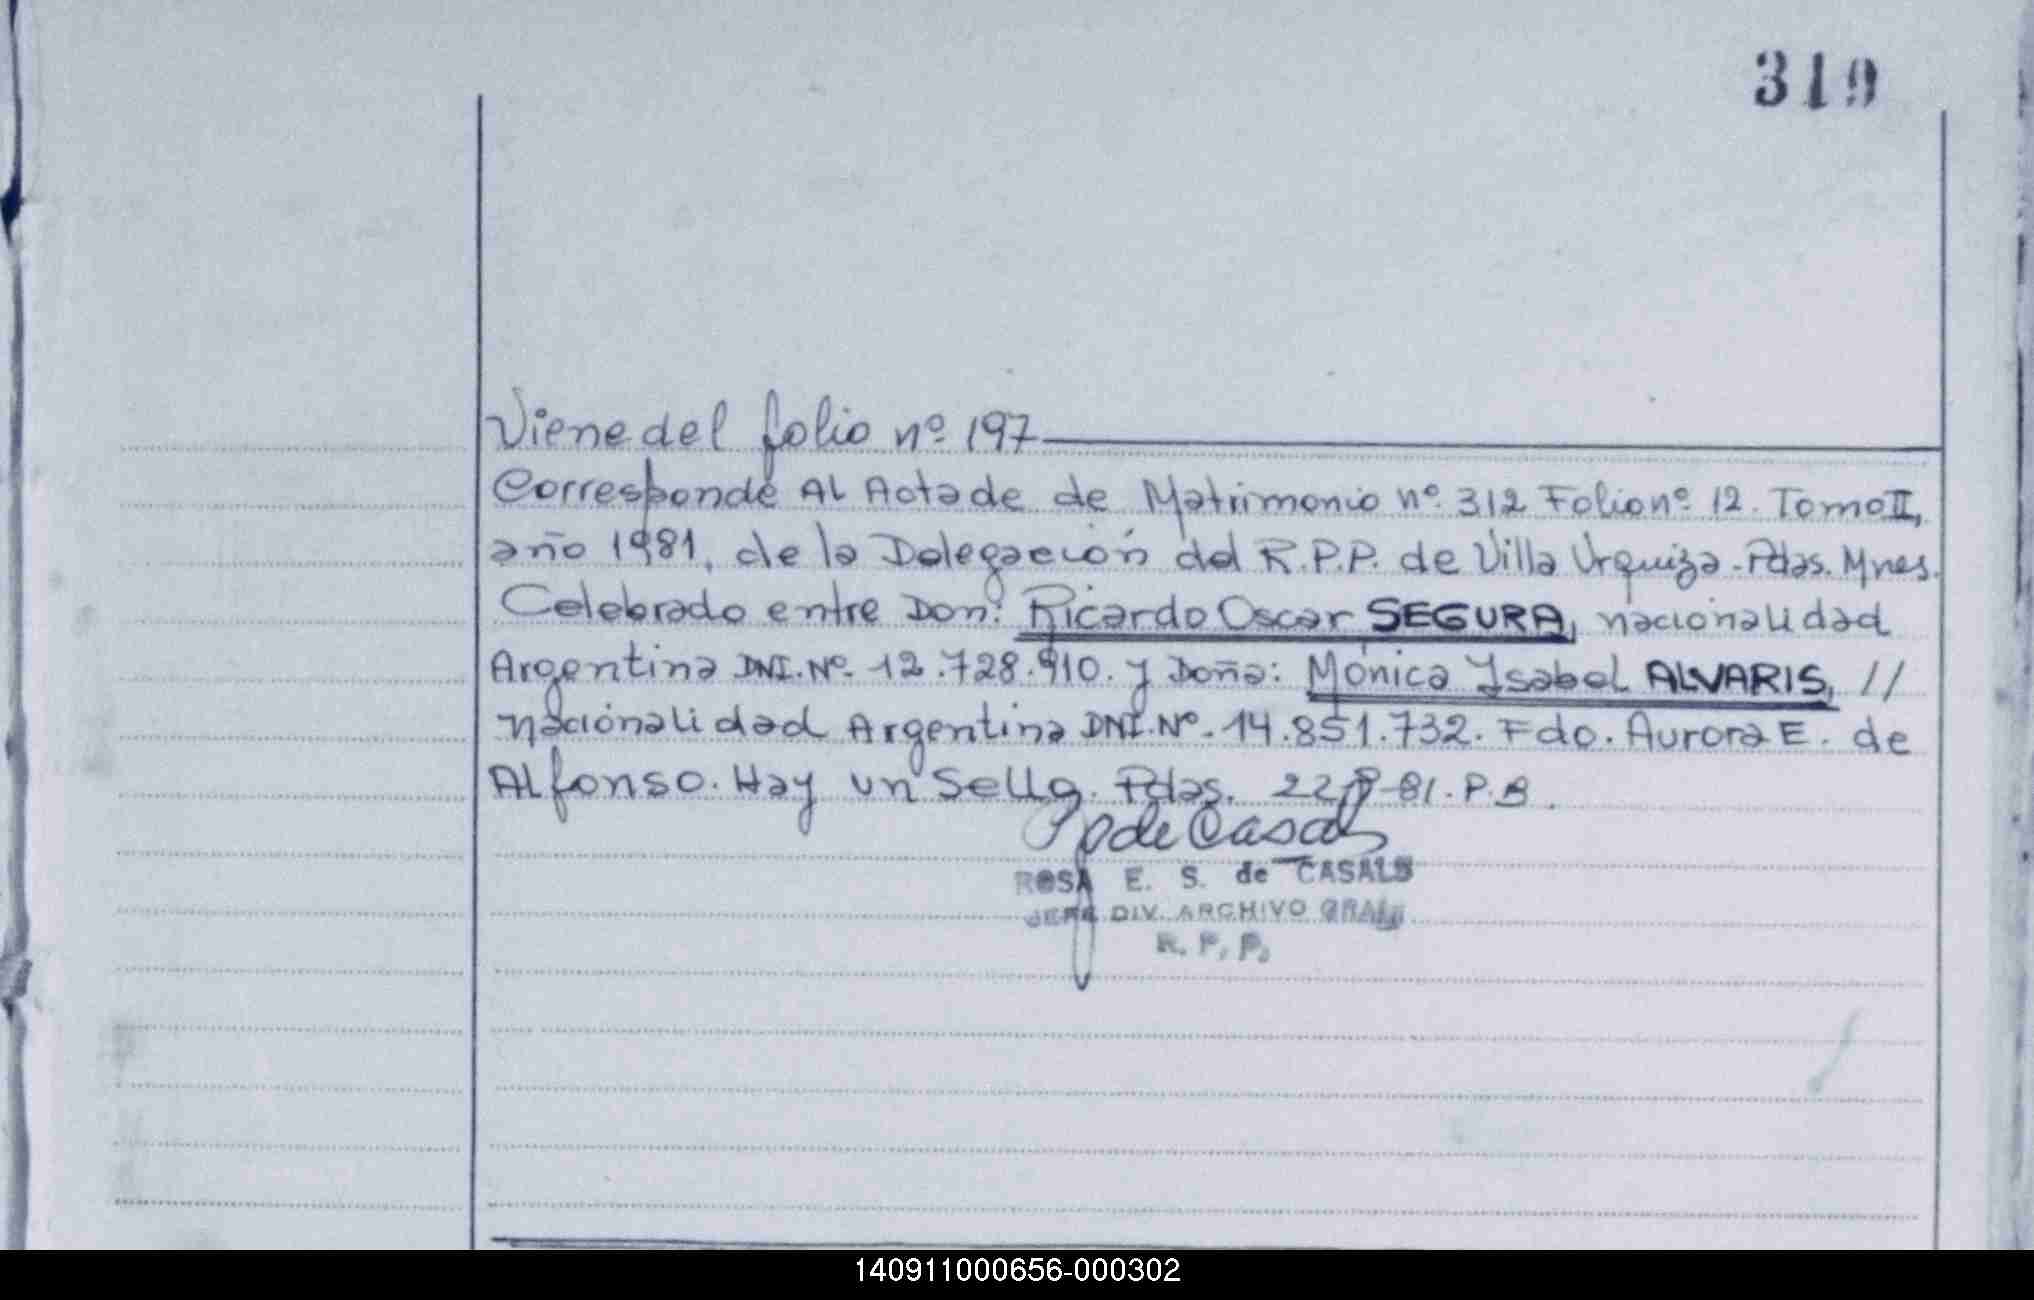 319
Viene del folio nº 197
Corresponde Al Acta de de Matrimonio nº 312 Folio nº 12. Tomo II,
año 1981, de la Delegación del R.P.P. de Villa Urquiza - Pdas. Mnes.
Celebrado entre Don: Ricardo Oscar SEGURA, nacionalidad
Argentina DNI. Nº - 12.728.910. y Doña: Mónica Ysabel ALVARIS, //
nacionalidad Argentina DNI. Nº - 14.851.732. Fdo. Aurora E. de
Alfonso. Hay un Sello. Pdas. 81. P.B.
de Casals
ROSA E. S. de CASALS
JEFE DIV. ARCHIVO GRAL
R. P. P.
140911000656-000302